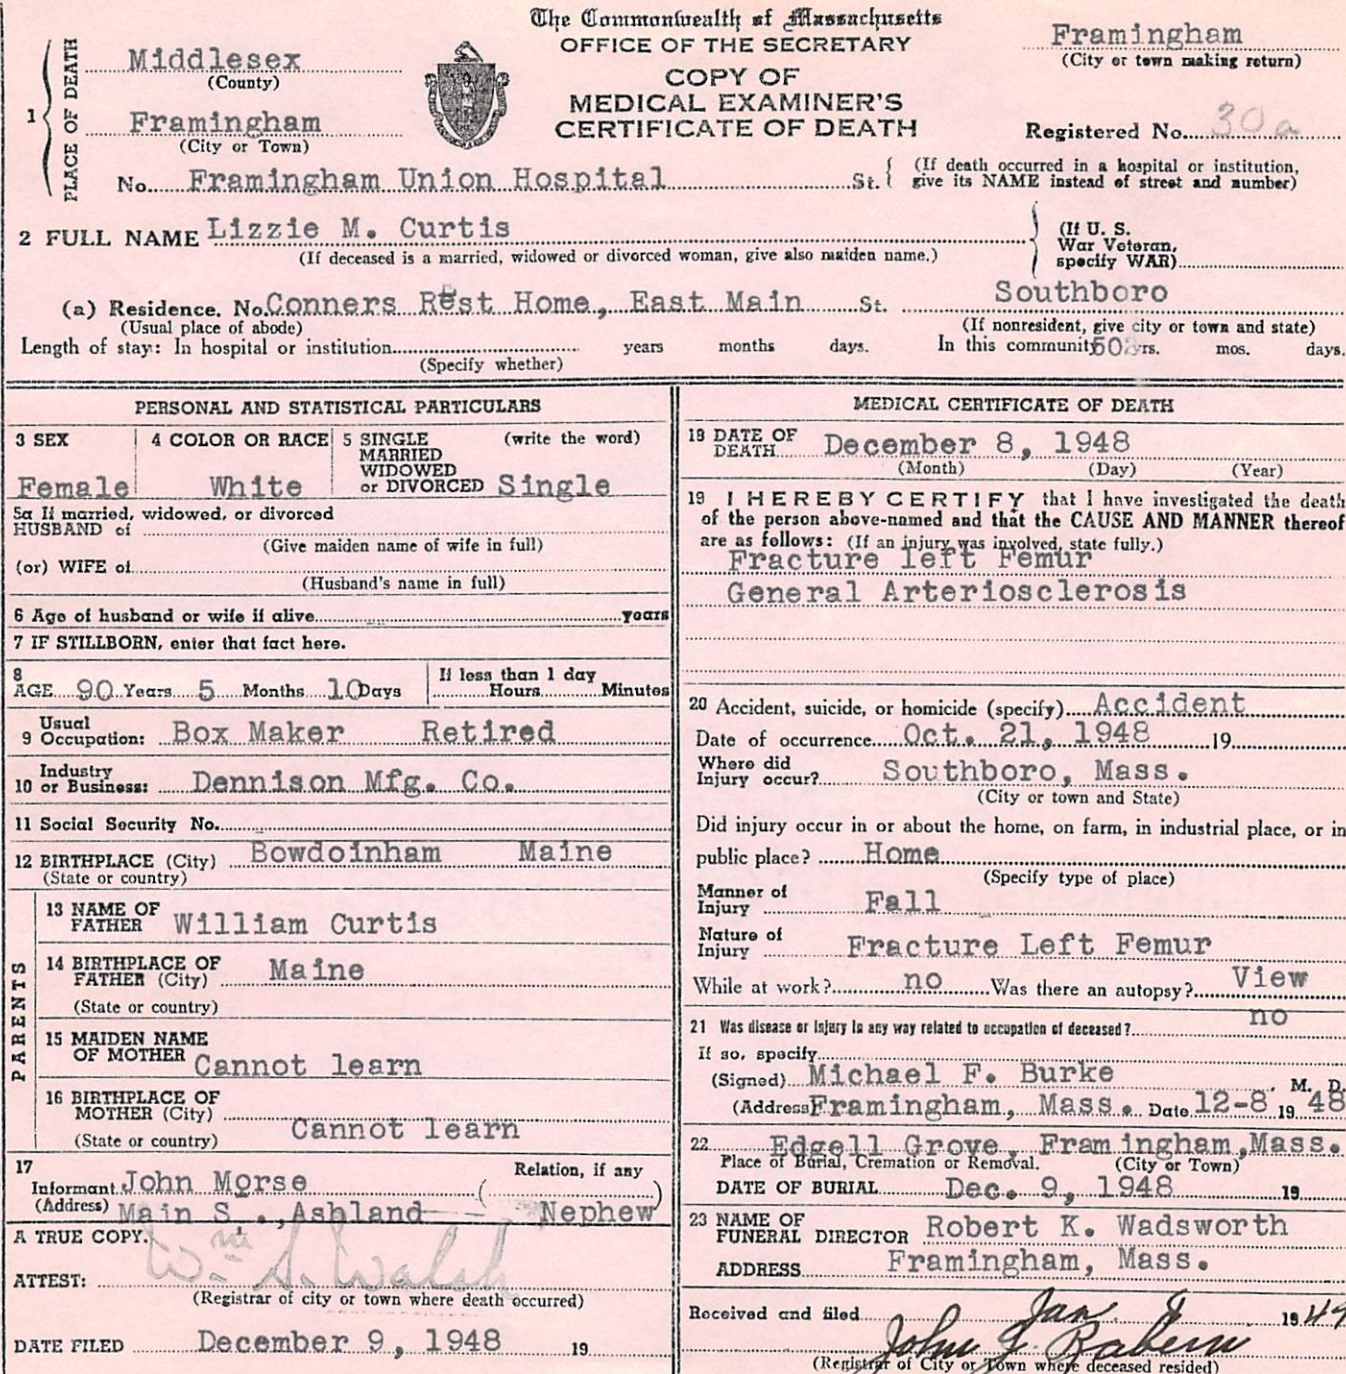 The Commonwealth of Massachusetts
OFFICE OF THE SECRETARY
COPY OF
MEDICAL EXAMINER'S
CERTIFICATE OF DEATH
Framingham
(City or town making return)
Registered No. 30a
1 PLACE OF DEATH
Middlesex
(County)
Framingham
(City or Town)
No. Framingham Union Hospital St. { (If death occurred in a hospital or institution,
give its NAME instead of street and number)
2 FULL NAME Lizzie M. Curtis
(If deceased is a married, widowed or divorced woman, give also maiden name.)
(If U. S.
War Veteran,
specify WAR)
(a) Residence. No. Conners Rest Home, East Main St. Southboro
(Usual place of abode) (If nonresident, give city or town and state)
Length of stay: In hospital or institution years months days. In this community 50 yrs. mos. days.
(Specify whether)
PERSONAL AND STATISTICAL PARTICULARS
3 SEX
Female
4 COLOR OR RACE
White
5 SINGLE (write the word)
MARRIED
WIDOWED
or DIVORCED Single
5a If married, widowed, or divorced
HUSBAND of
(Give maiden name of wife in full)
(or) WIFE of
(Husband's name in full)
6 Age of husband or wife if alive years
7 IF STILLBORN, enter that fact here.
8
AGE 90 Years 5 Months 10 Days
If less than 1 day
Hours Minutes
9 Usual
Occupation: Box Maker Retired
10 Industry
or Business: Dennison Mfg. Co.
11 Social Security No.
12 BIRTHPLACE (City) Bowdoinham Maine
(State or country)
PARENTS
13 NAME OF
FATHER William Curtis
14 BIRTHPLACE OF
FATHER (City) Maine
(State or country)
15 MAIDEN NAME
OF MOTHER Cannot learn
16 BIRTHPLACE OF
MOTHER (City)
(State or country) Cannot learn
17 Relation, if any
Informant John Morse ( )
(Address) Main S ., Ashland Nephew
A TRUE COPY.
Wm S. Walsh
ATTEST:
(Registrar of city or town where death occurred)
DATE FILED December 9, 1948 19
MEDICAL CERTIFICATE OF DEATH
18 DATE OF
DEATH December 8, 1948
(Month) (Day) (Year)
19 I HEREBY CERTIFY that I have investigated the death
of the person above-named and that the CAUSE AND MANNER thereof
are as follows: (If an injury was involved, state fully.)
Fracture left Femur
General Arteriosclerosis
20 Accident, suicide, or homicide (specify) Accident
Date of occurrence Oct. 21, 1948 19
Where did
Injury occur? Southboro, Mass.
(City or town and State)
Did injury occur in or about the home, on farm, in industrial place, or in
public place? Home
(Specify type of place)
Manner of
Injury Fall
Nature of
Injury Fracture Left Femur
While at work? no Was there an autopsy? View
21 Was disease or injury in any way related to occupation of deceased? no
If so, specify
(Signed) Michael F. Burke, M. D.
(Address) Framingham, Mass. Date 12-8 19 48
22 Edgell Grove, Framingham, Mass.
Place of Burial, Cremation or Removal. (City or Town)
DATE OF BURIAL Dec. 9, 1948 19
23 NAME OF
FUNERAL DIRECTOR Robert K. Wadsworth
ADDRESS Framingham, Mass.
Received and filed Jan 19 49
John J.
(Registrar of City or Town where deceased resided)